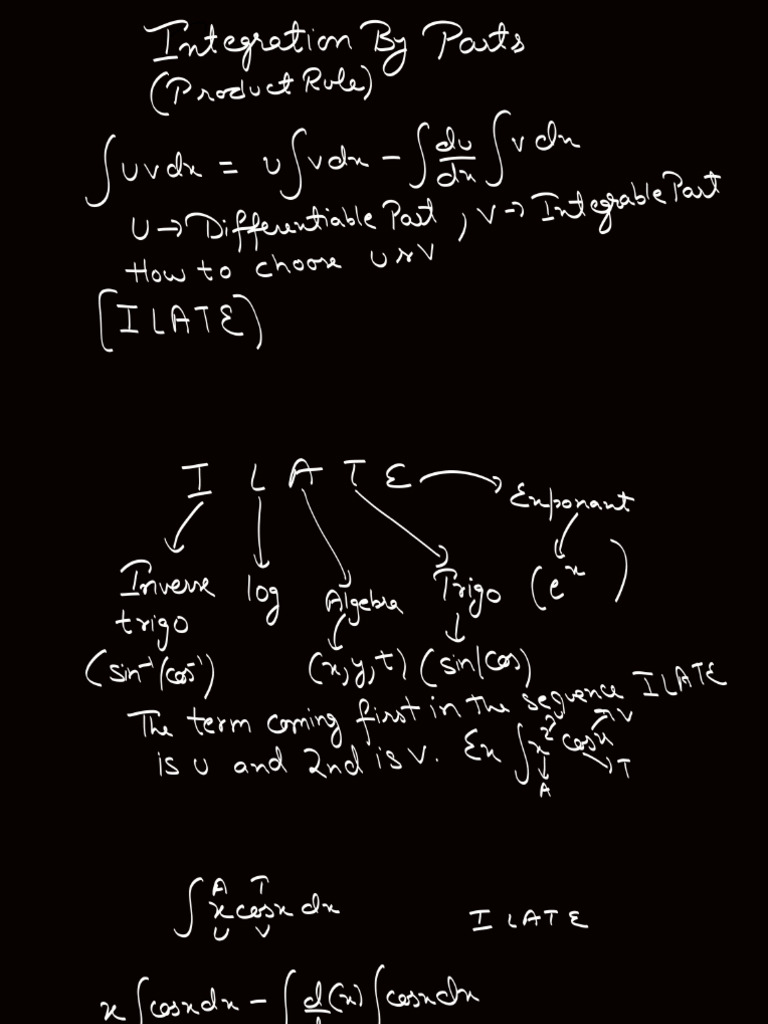 Integration By Parts
(Product Rule)
∫uvdx = u∫vdx - ∫du/dx ∫vdx
U → Differentiable Part, V → Integrable Part
How to choose u & v
[ILATE)
I L A T E → Exponant
Inverse log Algebra Trigo (e^x)
trigo
(sin⁻¹/cos⁻¹) (x,y,t) (sin/cos)
The term coming first in the sequence ILATE
is U and 2nd is V. Ex ∫x² cosx
U V
A T
A T
∫x cosx dx ILATE
U V
x∫cosxdx - ∫d(x)∫cosxdx